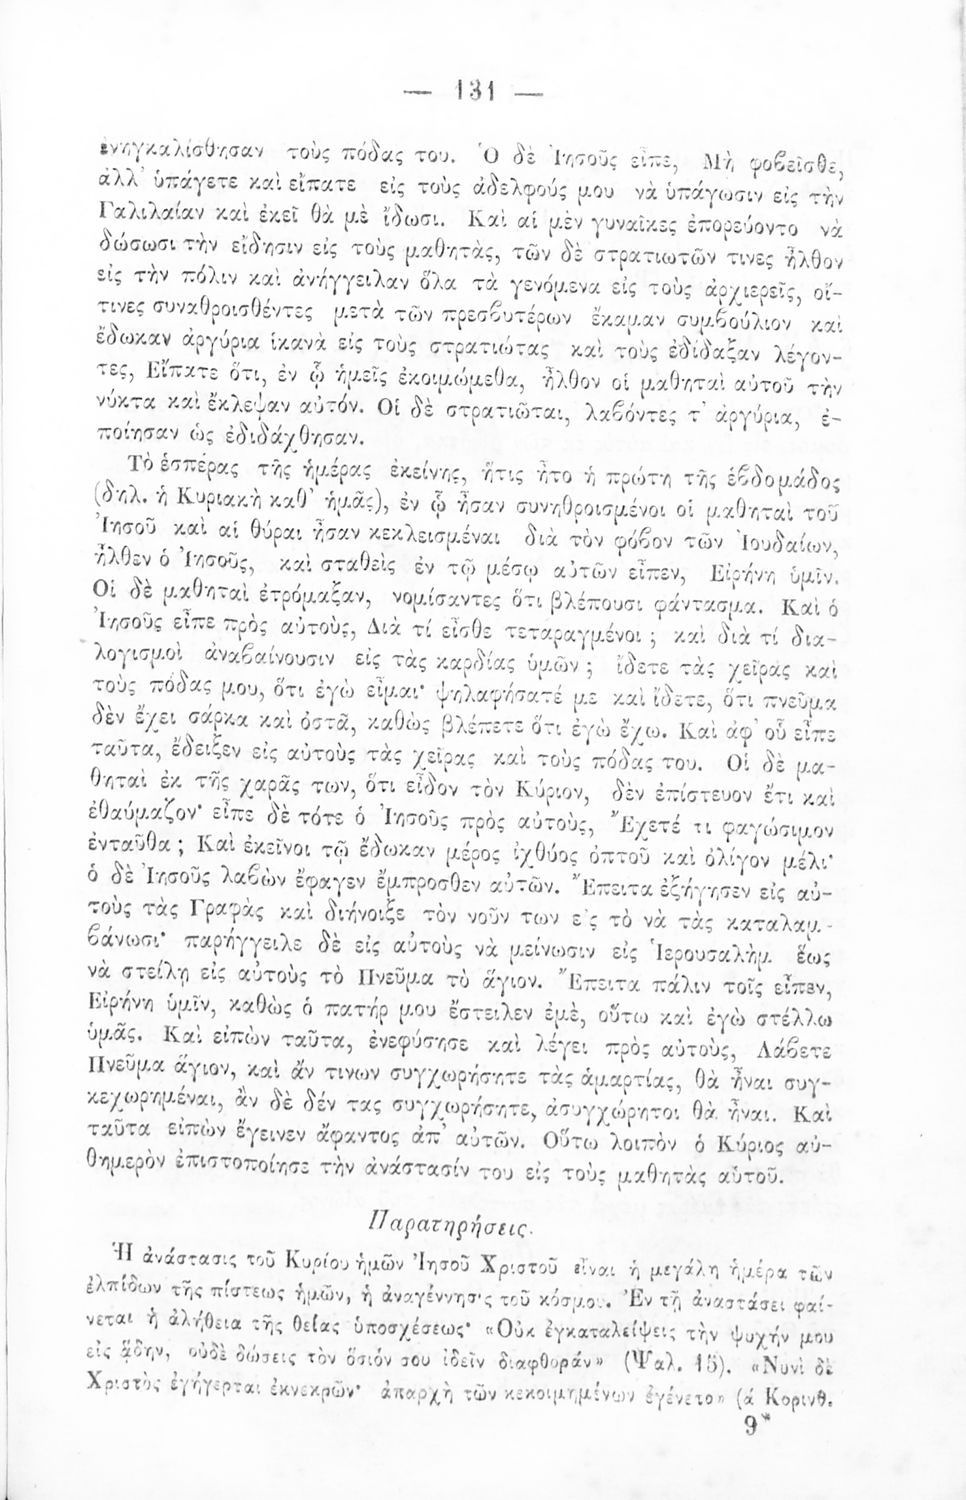 — 131 —
ἐνηγκαλίσθησαν τοὺς πόδας του. Ὁ δὲ Ἰησοῦς εἶπε, Μὴ φοβεῖσθε,
ἀλλ' ὑπάγετε καὶ εἴπατε εἰς τοὺς ἀδελφούς μου νὰ ὑπάγωσιν εἰς τὴν
Γαλιλαίαν καὶ ἐκεῖ θὰ μὲ ἴδωσι. Καὶ αἱ μὲν γυναῖκες ἐπορεύοντο νὰ
δώσωσι τὴν εἴδησιν εἰς τοὺς μαθητὰς, τῶν δὲ στρατιωτῶν τινες ἦλθον
εἰς τὴν πόλιν καὶ ἀνήγγειλαν ὅλα τὰ γενόμενα εἰς τοὺς ἀρχιερεῖς, οἵ-
τινες συναθροισθέντες μετὰ τῶν πρεσβυτέρων ἔκαμαν συμβούλιον καὶ
ἔδωκαν ἀργύρια ἱκανὰ εἰς τοὺς στρατιώτας καὶ τοὺς ἐδίδαξαν λέγον-
τες, Εἴπατε ὅτι, ἐν ᾧ ἡμεῖς ἐκοιμώμεθα, ἦλθον οἱ μαθηταὶ αὐτοῦ τὴν
νύκτα καὶ ἔκλεψαν αὐτόν. Οἱ δὲ στρατιῶται, λαβόντες τ' ἀργύρια, ἐ-
ποίησαν ὡς ἐδιδάχθησαν.
Τὸ ἑσπέρας τῆς ἡμέρας ἐκείνης, ἥτις ἦτο ἡ πρώτη τῆς ἑβδομάδος
(δηλ. ἡ Κυριακὴ καθ' ἡμᾶς), ἐν ᾧ ἦσαν συνηθροισμένοι οἱ μαθηταὶ τοῦ
Ἰησοῦ καὶ αἱ θύραι ἦσαν κεκλεισμέναι διὰ τὸν φόβον τῶν Ἰουδαίων,
ἦλθεν ὁ Ἰησοῦς, καὶ σταθεὶς ἐν τῷ μέσῳ αὐτῶν εἶπεν, Εἰρήνη ὑμῖν.
Οἱ δὲ μαθηταὶ ἐτρόμαξαν, νομίσαντες ὅτι βλέπουσι φάντασμα. Καὶ ὁ
Ἰησοῦς εἶπε πρὸς αὐτοὺς, Διὰ τί εἶσθε τεταραγμένοι ; καὶ διὰ τί δια-
λογισμοὶ ἀναβαίνουσιν εἰς τὰς καρδίας ὑμῶν ; ἴδετε τὰς χεῖρας καὶ
τοὺς πόδας μου, ὅτι ἐγὼ εἶμαι· ψηλαφήσατέ με καὶ ἴδετε, ὅτι πνεῦμα
δὲν ἔχει σάρκα καὶ ὀστᾶ, καθὼς βλέπετε ὅτι ἐγὼ ἔχω. Καὶ ἀφ' οὗ εἶπε
ταῦτα, ἔδειξεν εἰς αὐτοὺς τὰς χεῖρας καὶ τοὺς πόδας του. Οἱ δὲ μα-
θηταὶ ἐκ τῆς χαρᾶς των, ὅτι εἶδον τὸν Κύριον, δὲν ἐπίστευον ἔτι καὶ
ἐθαύμαζον· εἶπε δὲ τότε ὁ Ἰησοῦς πρὸς αὐτοὺς, Ἔχετέ τι φαγώσιμον
ἐνταῦθα ; Καὶ ἐκεῖνοι τῷ ἔδωκαν μέρος ἰχθύος ὀπτοῦ καὶ ὀλίγον μέλι·
ὁ δὲ Ἰησοῦς λαβὼν ἔφαγεν ἔμπροσθεν αὐτῶν. Ἔπειτα ἐξήγησεν εἰς αὐ-
τοὺς τὰς Γραφὰς καὶ διήνοιξε τὸν νοῦν των εἰς τὸ νὰ τὰς καταλαμ-
βάνωσι· παρήγγειλε δὲ εἰς αὐτοὺς νὰ μείνωσιν εἰς Ἱερουσαλὴμ ἕως
νὰ στείλῃ εἰς αὐτοὺς τὸ Πνεῦμα τὸ ἅγιον. Ἔπειτα πάλιν τοῖς εἶπεν,
Εἰρήνη ὑμῖν, καθὼς ὁ πατήρ μου ἔστειλεν ἐμὲ, οὕτω καὶ ἐγὼ στέλλω
ὑμᾶς. Καὶ εἰπὼν ταῦτα, ἐνεφύσησε καὶ λέγει πρὸς αὐτοὺς, Λάβετε
Πνεῦμα ἅγιον, καὶ ἄν τινων συγχωρήσητε τὰς ἁμαρτίας, θὰ ἦναι συγ-
κεχωρημέναι, ἂν δὲ δέν τας συγχωρήσητε, ἀσυγχώρητοι θὰ ἦναι. Καὶ
ταῦτα εἰπὼν ἔγεινεν ἄφαντος ἀπ' αὐτῶν. Οὕτω λοιπὸν ὁ Κύριος αὐ-
θημερὸν ἐπιστοποίησε τὴν ἀνάστασίν του εἰς τοὺς μαθητὰς αὑτοῦ.
Παρατηρήσεις.
Ἡ ἀνάστασις τοῦ Κυρίου ἡμῶν Ἰησοῦ Χριστοῦ εἶναι ἡ μεγάλη ἡμέρα τῶν
ἐλπίδων τῆς πίστεως ἡμῶν, ἡ ἀναγέννησις τοῦ κόσμου. Ἐν τῇ ἀναστάσει φαί-
νεται ἡ ἀλήθεια τῆς θείας ὑποσχέσεως· «Οὐκ ἐγκαταλείψεις τὴν ψυχήν μου
εἰς ᾅδην, οὐδὲ δώσεις τὸν ὅσιόν σου ἰδεῖν διαφθοράν» (Ψαλ. 15). «Νυνὶ δὲ
Χριστὸς ἐγήγερται ἐκνεκρῶν· ἀπαρχὴ τῶν κεκοιμημένων ἐγένετο» (ά Κορινθ.
9*